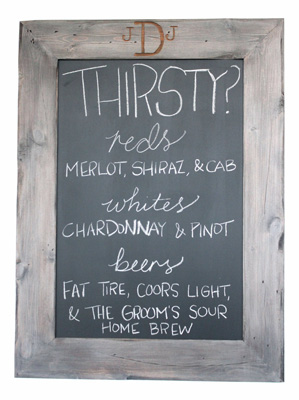 J D J
THIRSTY?
reds
MERLOT, SHIRAZ, & CAB
whites
CHARDONNAY & PINOT
beers
FAT TIRE, COORS LIGHT,
& THE GROOM'S SOUR
HOME BREW